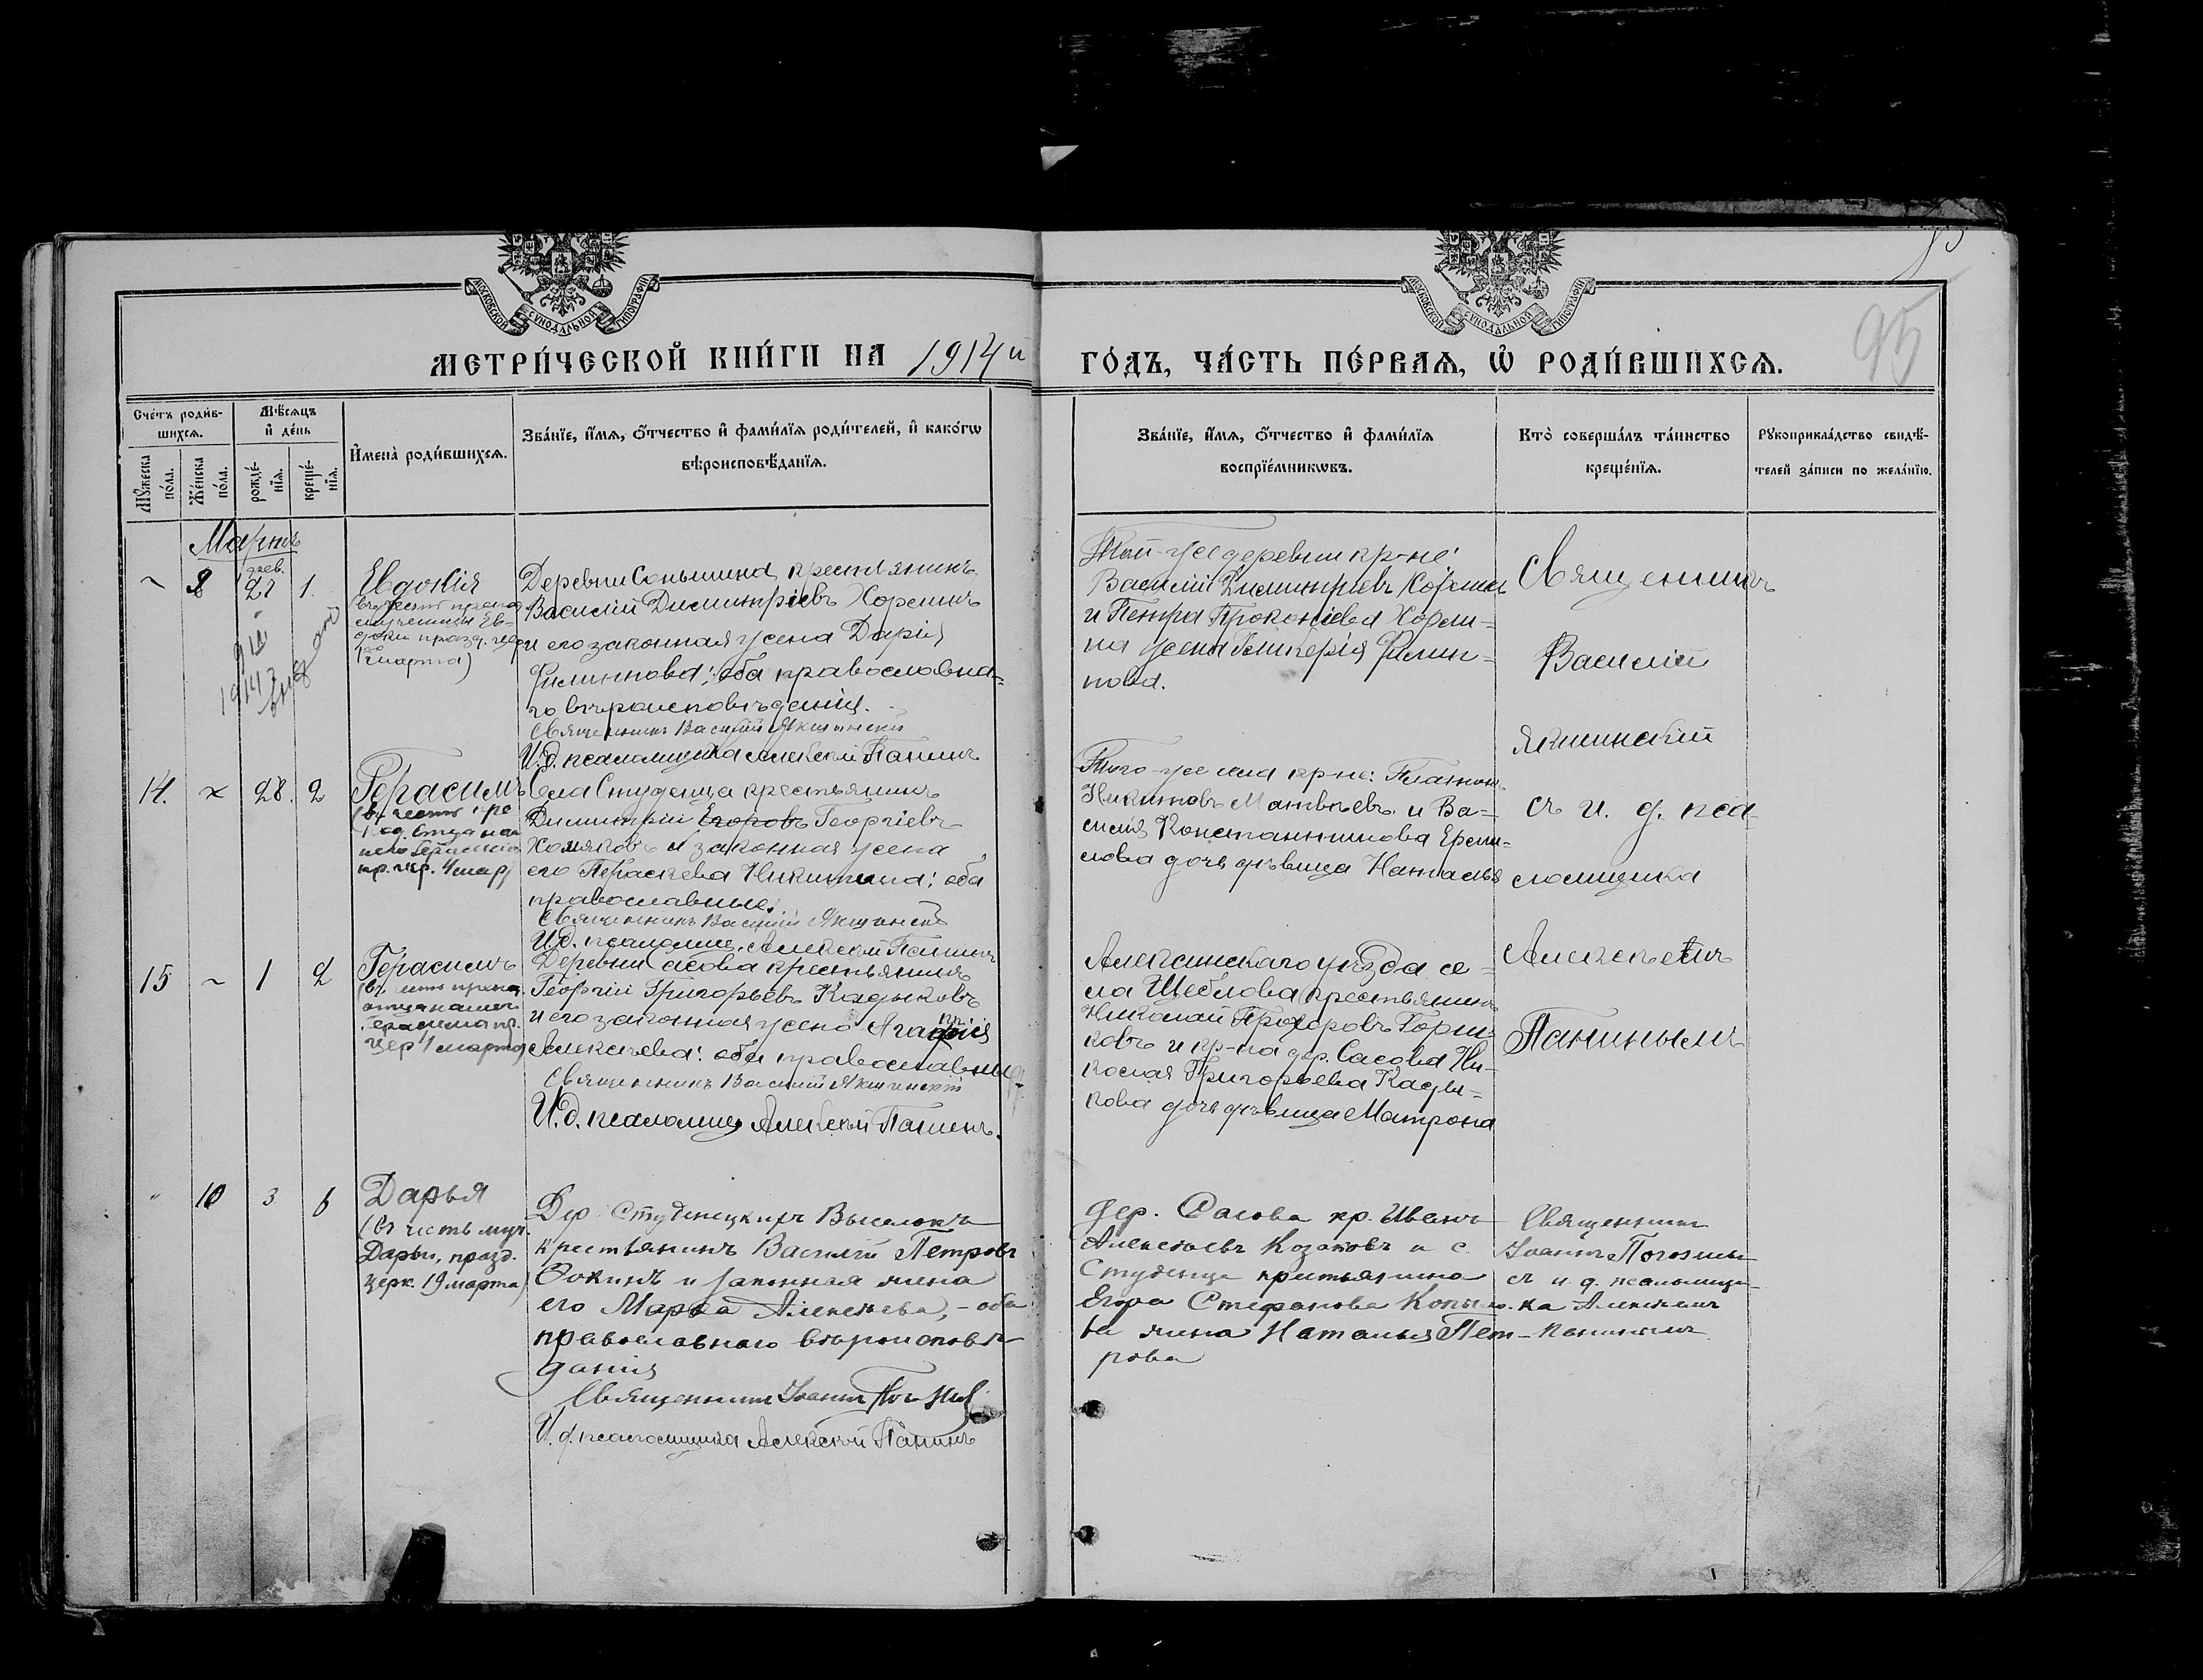 МОСКОВСКОЙ СѴНОДАЛЬНОЙ ТИПОГРАФІИ
МОСКОВСКОЙ СѴНОДАЛЬНОЙ ТИПОГРАФІИ
95
МЕТРИ́ЧЕСКОЙ КНИ́ГИ НА 1914 й
ГО́ДЪ, ЧА́СТЬ ПЕ́РВАѦ, Ѡ РОДИ́ВШИХСѦ.
Сче́тъ роди́в-
шихсѧ.
Мѣ́сѧцъ
и҆ де́нь
Мꙋ́жеска по́ла.
Же́нска по́ла.
рожде́-нїѧ.
креще́-нїѧ.
И҆мена̀ роди́вшихсѧ.
Зва́нїе, и҆́мѧ, ѻ҆́тчество и҆ фами́лїѧ роди́телей, и҆ како́гѡ
вѣроисповѣ́данїѧ.
Зва́нїе, и҆́мѧ, ѻ҆́тчество и҆ фами́лїѧ
воспрїе́мникѡвъ.
Кто̀ соверша́лъ та́инство
креще́нїѧ.
Рꙋкоприкла́дство свидѣ́-
телей за́писи по жела́нїю.
Мартъ
8 фев. 27 1.
Евдокія
(въ честь препод.
мученицы Ев-
докіи празд. цер
1го марта)
Деревни Соньшина крестьянинъ
Василій Димитріевъ Хореинъ
и его законная жена Дарія
Филиппова; оба православна-
го вѣроисповѣданія.
Священникъ Василій Якшинскій
И.д. псаломщика Алексѣй Панинъ
Той-же деревни кр-не:
Василій Димитріевъ
и Петра Прокопіева Хореи-
на жена Гликерія Филип-
пова.
Священникъ
Василій
Якшинскій
съ и. д. пса-
ломщика
Алексѣемъ
Панинымъ
14. 28. 2
Герасимъ
(въ честь пре
под. отца на
шего Герасима
пр. цер. 4 мар)
Села Студенца крестьянинъ
Димитрій Егоровъ Георгіевъ
Хомяковъ и законная жена
его Параскева Никитина: оба
православные.
Священникъ Василій Якшинскій
И.д. псаломщ. Алексѣй Панинъ
Того-же села кр-не: Платонъ
Никитовъ Матвѣевъ и Ва-
силія Константинова Ереми-
лова дочь дѣвица Наталья
15 1 2
Герасимъ
(въ честь препод.
отца нашего
Герасима пр.
цер 4 марта)
Деревни Сасова крестьянинъ
Георгій Григорьевъ Кадыковъ
и его законная жена
Алексѣева: оба православные
Священникъ Василій Якшинскій
И.д. псаломщ. Алексѣй Панинъ.
Алексинскаго уѣзда се-
ла Щеблова крестьянинъ
Николай Прохоровъ Горш-
ковъ и кр-на дер. Сасова Ни-
колая Григорьева Кады-
кова дочь дѣвица Матрона
10 3 6
Дарья
(въ честь муч.
Дарьи, празд.
церк. 19 марта)
Дер. Студенецкихъ Выселокъ
крестьянинъ Василій Петровъ
Фокинъ и законная жена
его Марья Алексѣева, - оба
православнаго вѣроисповѣ-
данія
Священникъ Іоаннъ
И.д. псаломщика Алексѣй Панинъ
дер. Сасова кр. Иванъ
Алексѣевъ Козаковъ и с.
Студенца крестьянина
Егора Стефанова Копыло-
ва жена Наталья Пет-
рова
Священникъ
Іоаннъ
съ и. д. псаломщи-
ка Алексѣемъ
Панинымъ